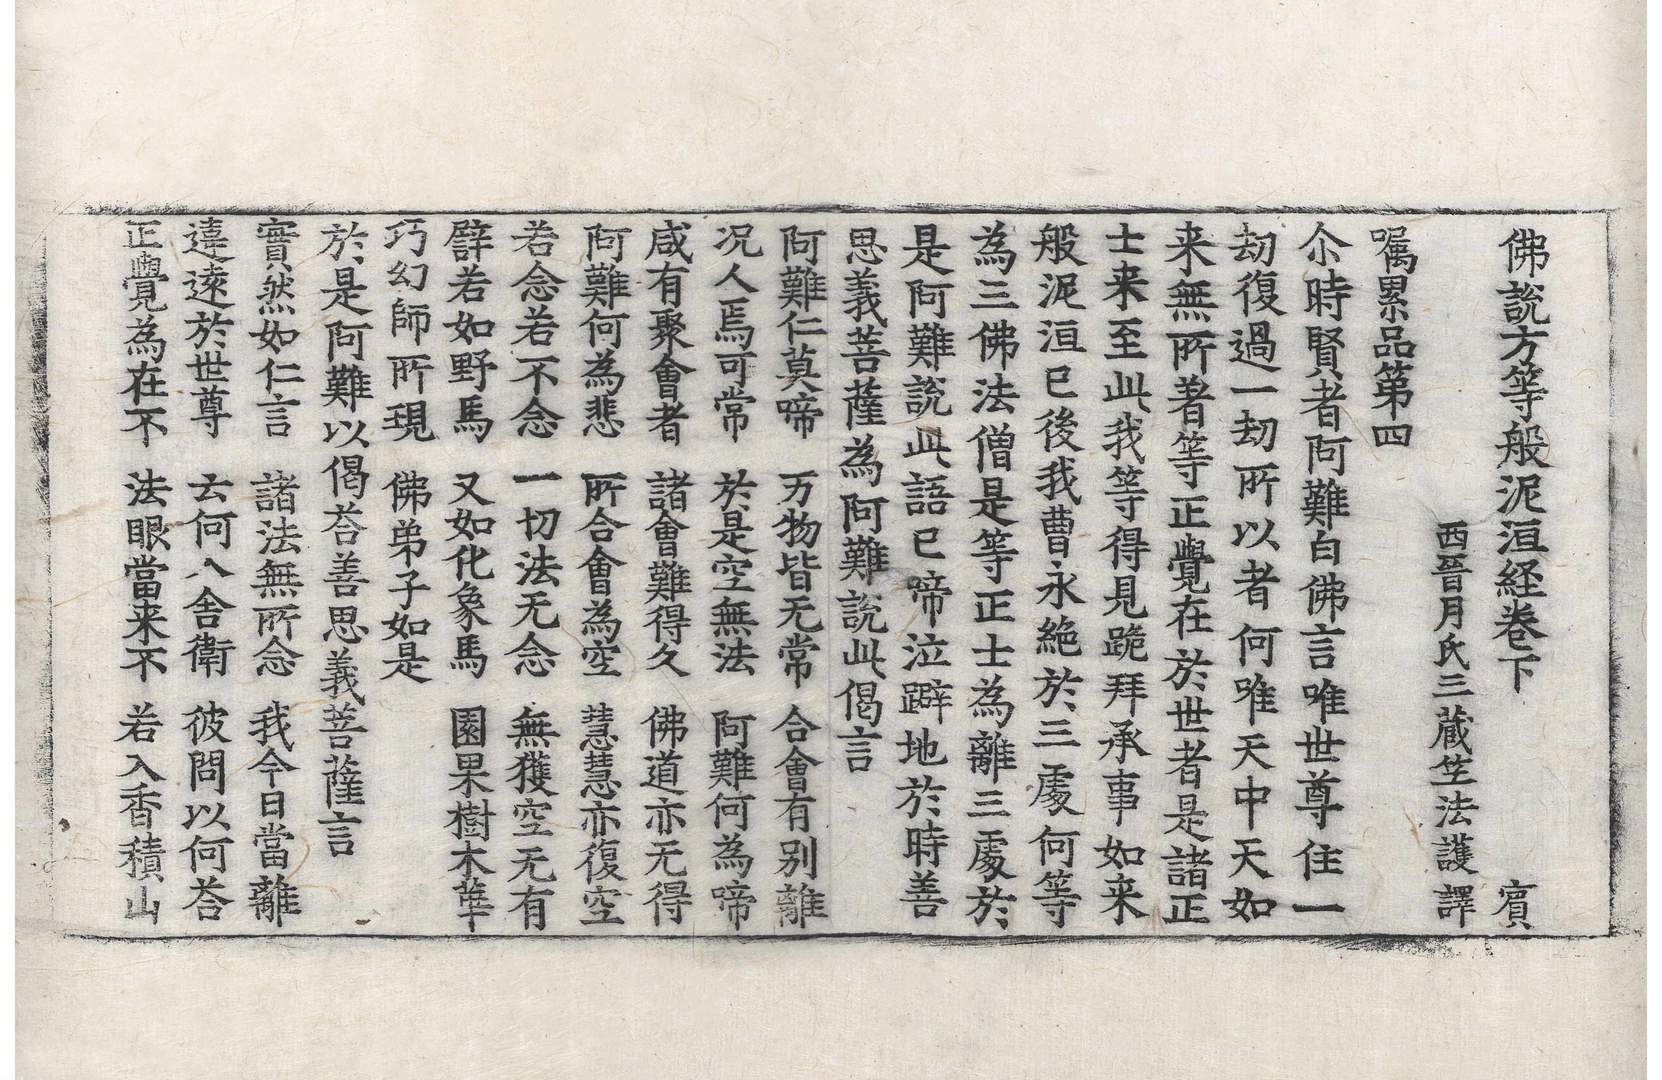 佛說方等般泥洹経卷下 賔
西晉月氏三藏竺法護譯
嘱累品第四
尒時賢者阿難白佛言唯世尊住一
劫復過一劫所以者何唯天中天如
来無所著等正覺在於世者是諸正
士来至此我等得見跪拜承事如来
般泥洹已後我曹永絶於三處何等
為三佛法僧是等正士為離三處於
是阿難說此語已啼泣躃地於時善
思義菩薩為阿難說此偈言
阿難仁莫啼 万物皆无常 合會有别離
况人焉可常 於是空無法 阿難何為啼
咸有聚會者 諸會難得久 佛道亦无得
阿難何為悲 所合會為空 慧慧亦復空
若念若不念 一切法无念 無獲空无有
譬若如野馬 又如化象馬 園果樹木華
巧幻師所現 佛弟子如是
於是阿難以偈荅善思義菩薩言
實然如仁言 諸法無所念 我今日當離
違遠於世尊 云何入舎衛 彼問以何荅
正覺為在不 法眼當来不 若入香積山